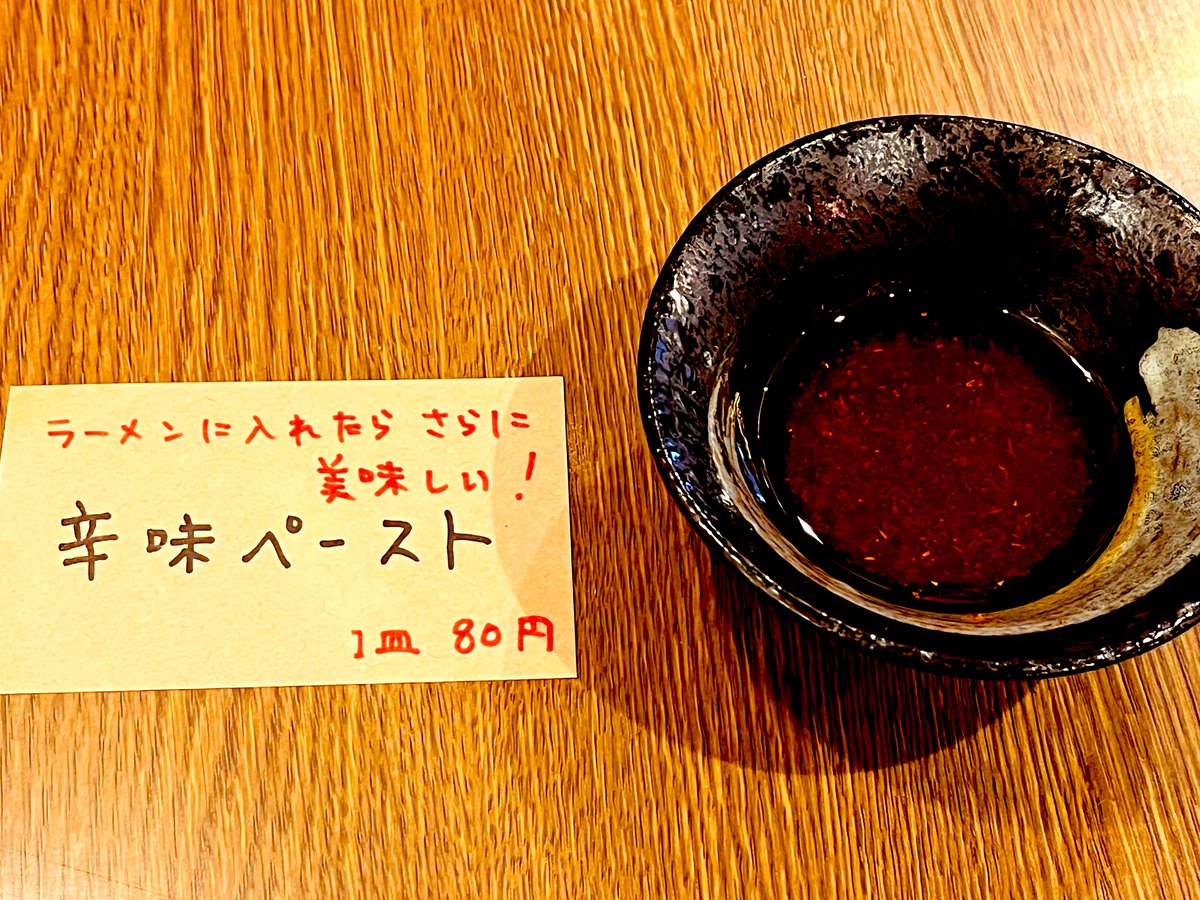 ラーメンに入れたら さらに
美味しい!
辛味ペースト
1皿 80円